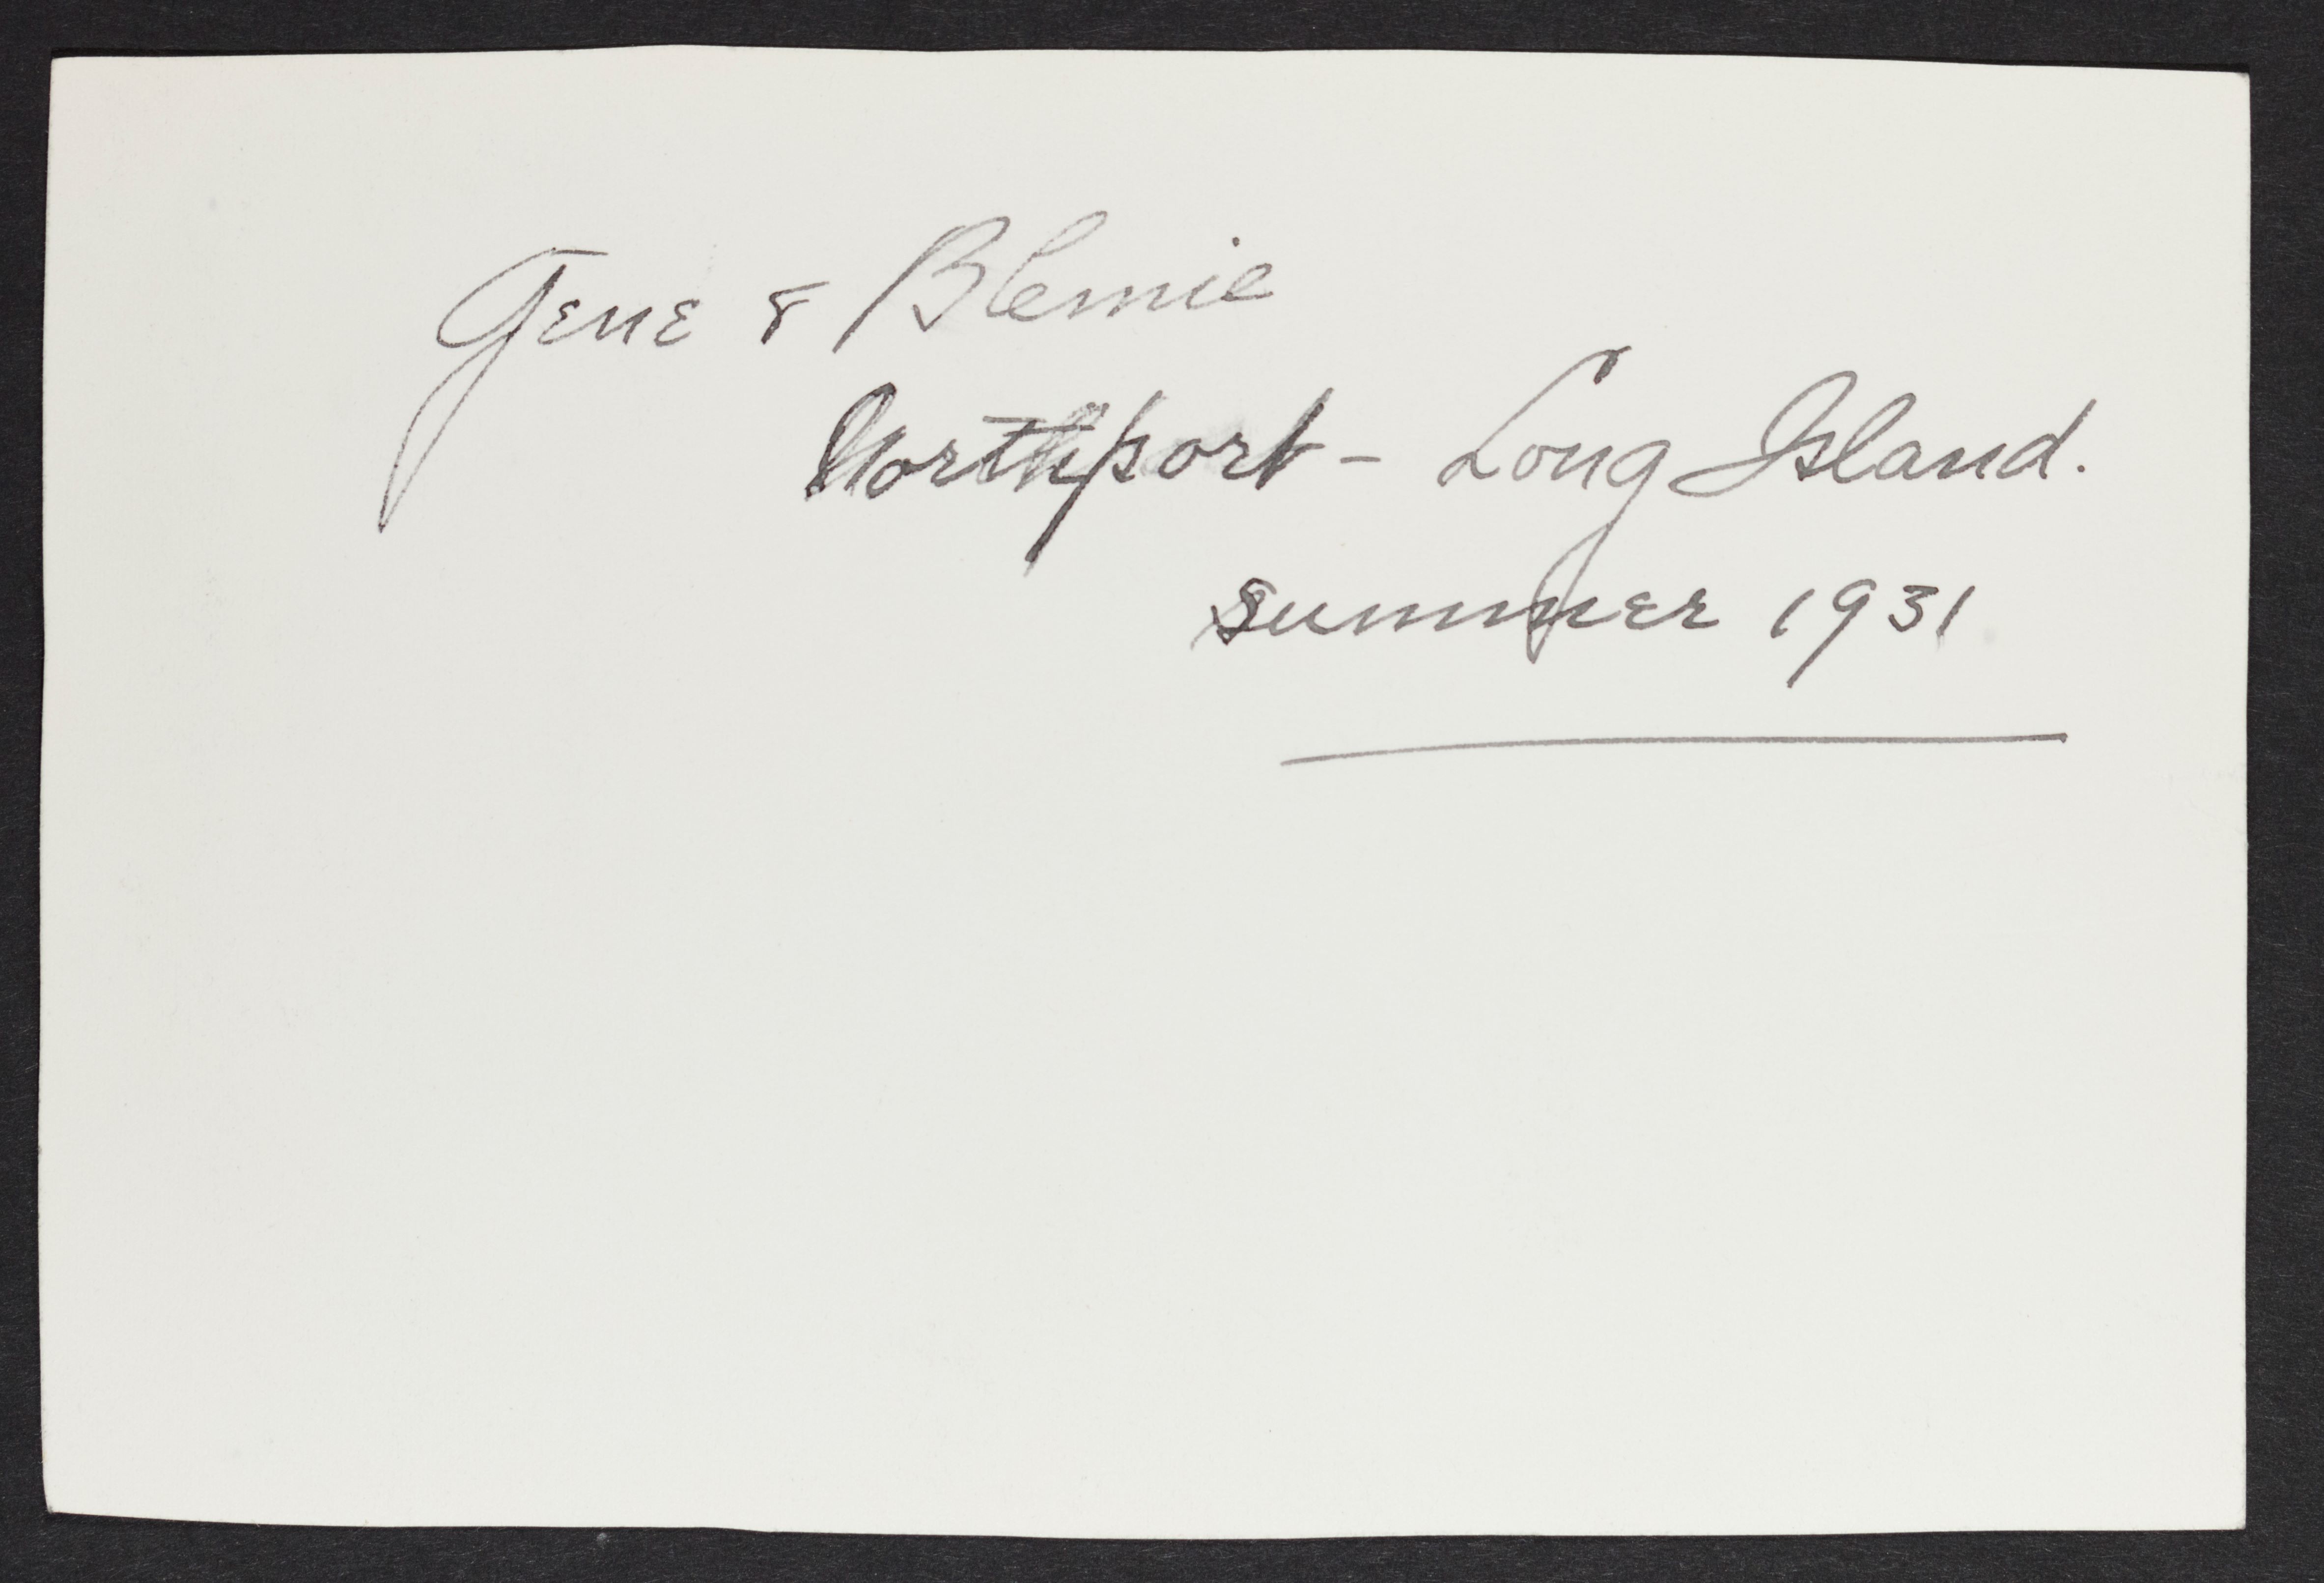 Gene & Blemie
Northport - Long Island.
summer 1931